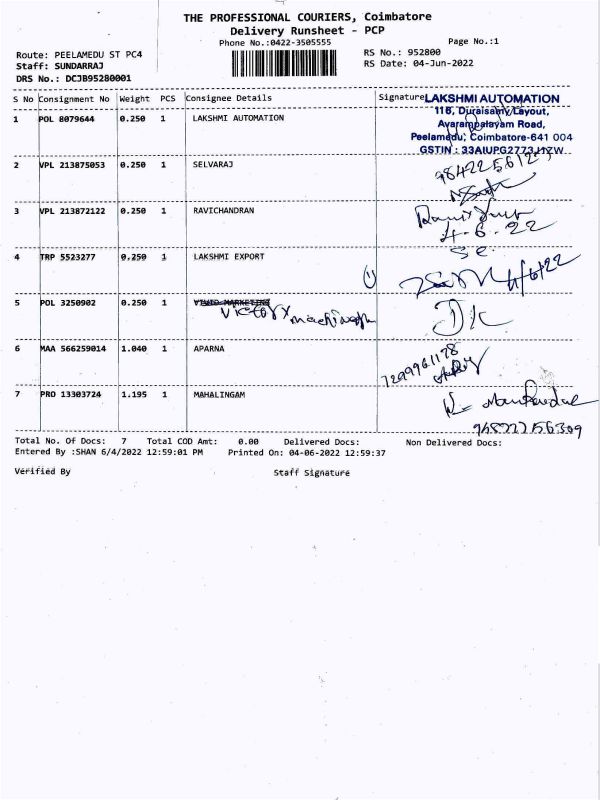 THE PROFESSIONAL COURIERS, Coimbatore
Delivery Runsheet - PCP
Phone No.:0422-3505555 Page No.:1
Route: PEELAMEDU ST PC4 RS No.: 952800
Staff: SUNDARRAJ RS Date: 04-Jun-2022
DRS No.: DCJB95280001
S No Consignment No Weight PCS Consignee Details Signature
LAKSHMI AUTOMATION
116, Duraisamy Layout,
Avarampalayam Road,
Peelamedu, Coimbatore-641 004
GSTIN : 33AIUPG2773
1 POL 8079644 0.250 1 LAKSHMI AUTOMATION
2 VPL 213875053 0.250 1 SELVARAJ
3 VPL 213872122 0.250 1 RAVICHANDRAN
4-6-22
4 TRP 5523277 0.250 1 LAKSHMI EXPORT
4/6/22
5 POL 3250902 0.250 1
Victory
6 MAA 566259014 1.040 1 APARNA
7299961178
7 PRO 13303724 1.195 1 MAHALINGAM
Total No. Of Docs: 7 Total COD Amt: 0.00 Delivered Docs: Non Delivered Docs:
Entered By :SHAN 6/4/2022 12:59:01 PM Printed On: 04-06-2022 12:59:37
Verified By Staff Signature